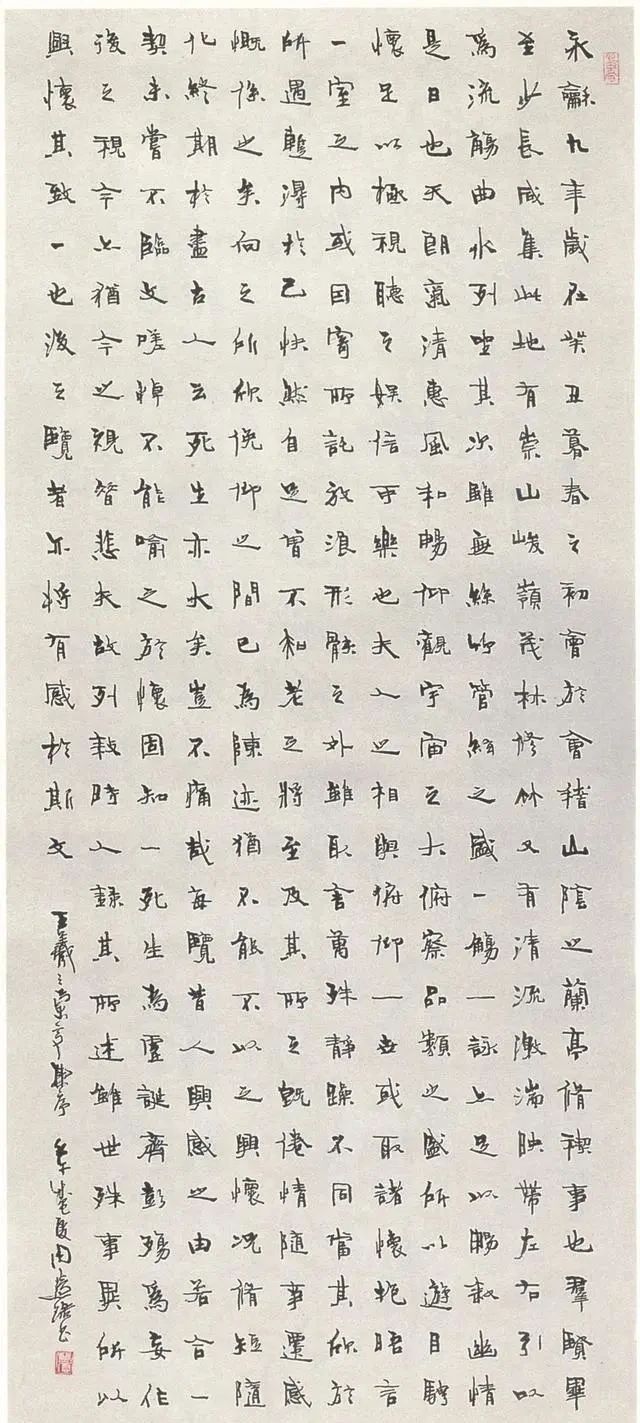 永龢九年歲在癸丑暮春之初會於會稽山陰之蘭亭脩禊事也羣賢畢
至少長咸集此地有崇山峻嶺茂林修竹又有清流激湍映帶左右引以
爲流觴曲水列坐其次雖無絲竹管絃之盛一觴一詠亦足以暢敘幽情
是日也天朗氣清惠風和暢仰觀宇宙之大俯察品類之盛所以遊目騁
懷足以極視聽之娛信可樂也夫人之相與俯仰一世或取諸懷抱晤言
一室之內或因寄所託放浪形骸之外雖取舍萬殊靜躁不同當其欣於
所遇蹔得於己快然自足曾不知老之將至及其所之既倦情隨事遷感
慨係之矣向之所欣俛仰之間已為陳迹猶不能不以之興懷況脩短隨
化終期於盡古人云死生亦大矣豈不痛哉每覽昔人興感之由若合一
契未嘗不臨文嗟悼不能喻之於懷固知一死生為虛誕齊彭殤爲妄作
後之視今亦猶今之視昔悲夫故列敘時人錄其所述雖世殊事異所以
興懷其致一也後之覽者亦將有感於斯文
王羲之蘭亭集序